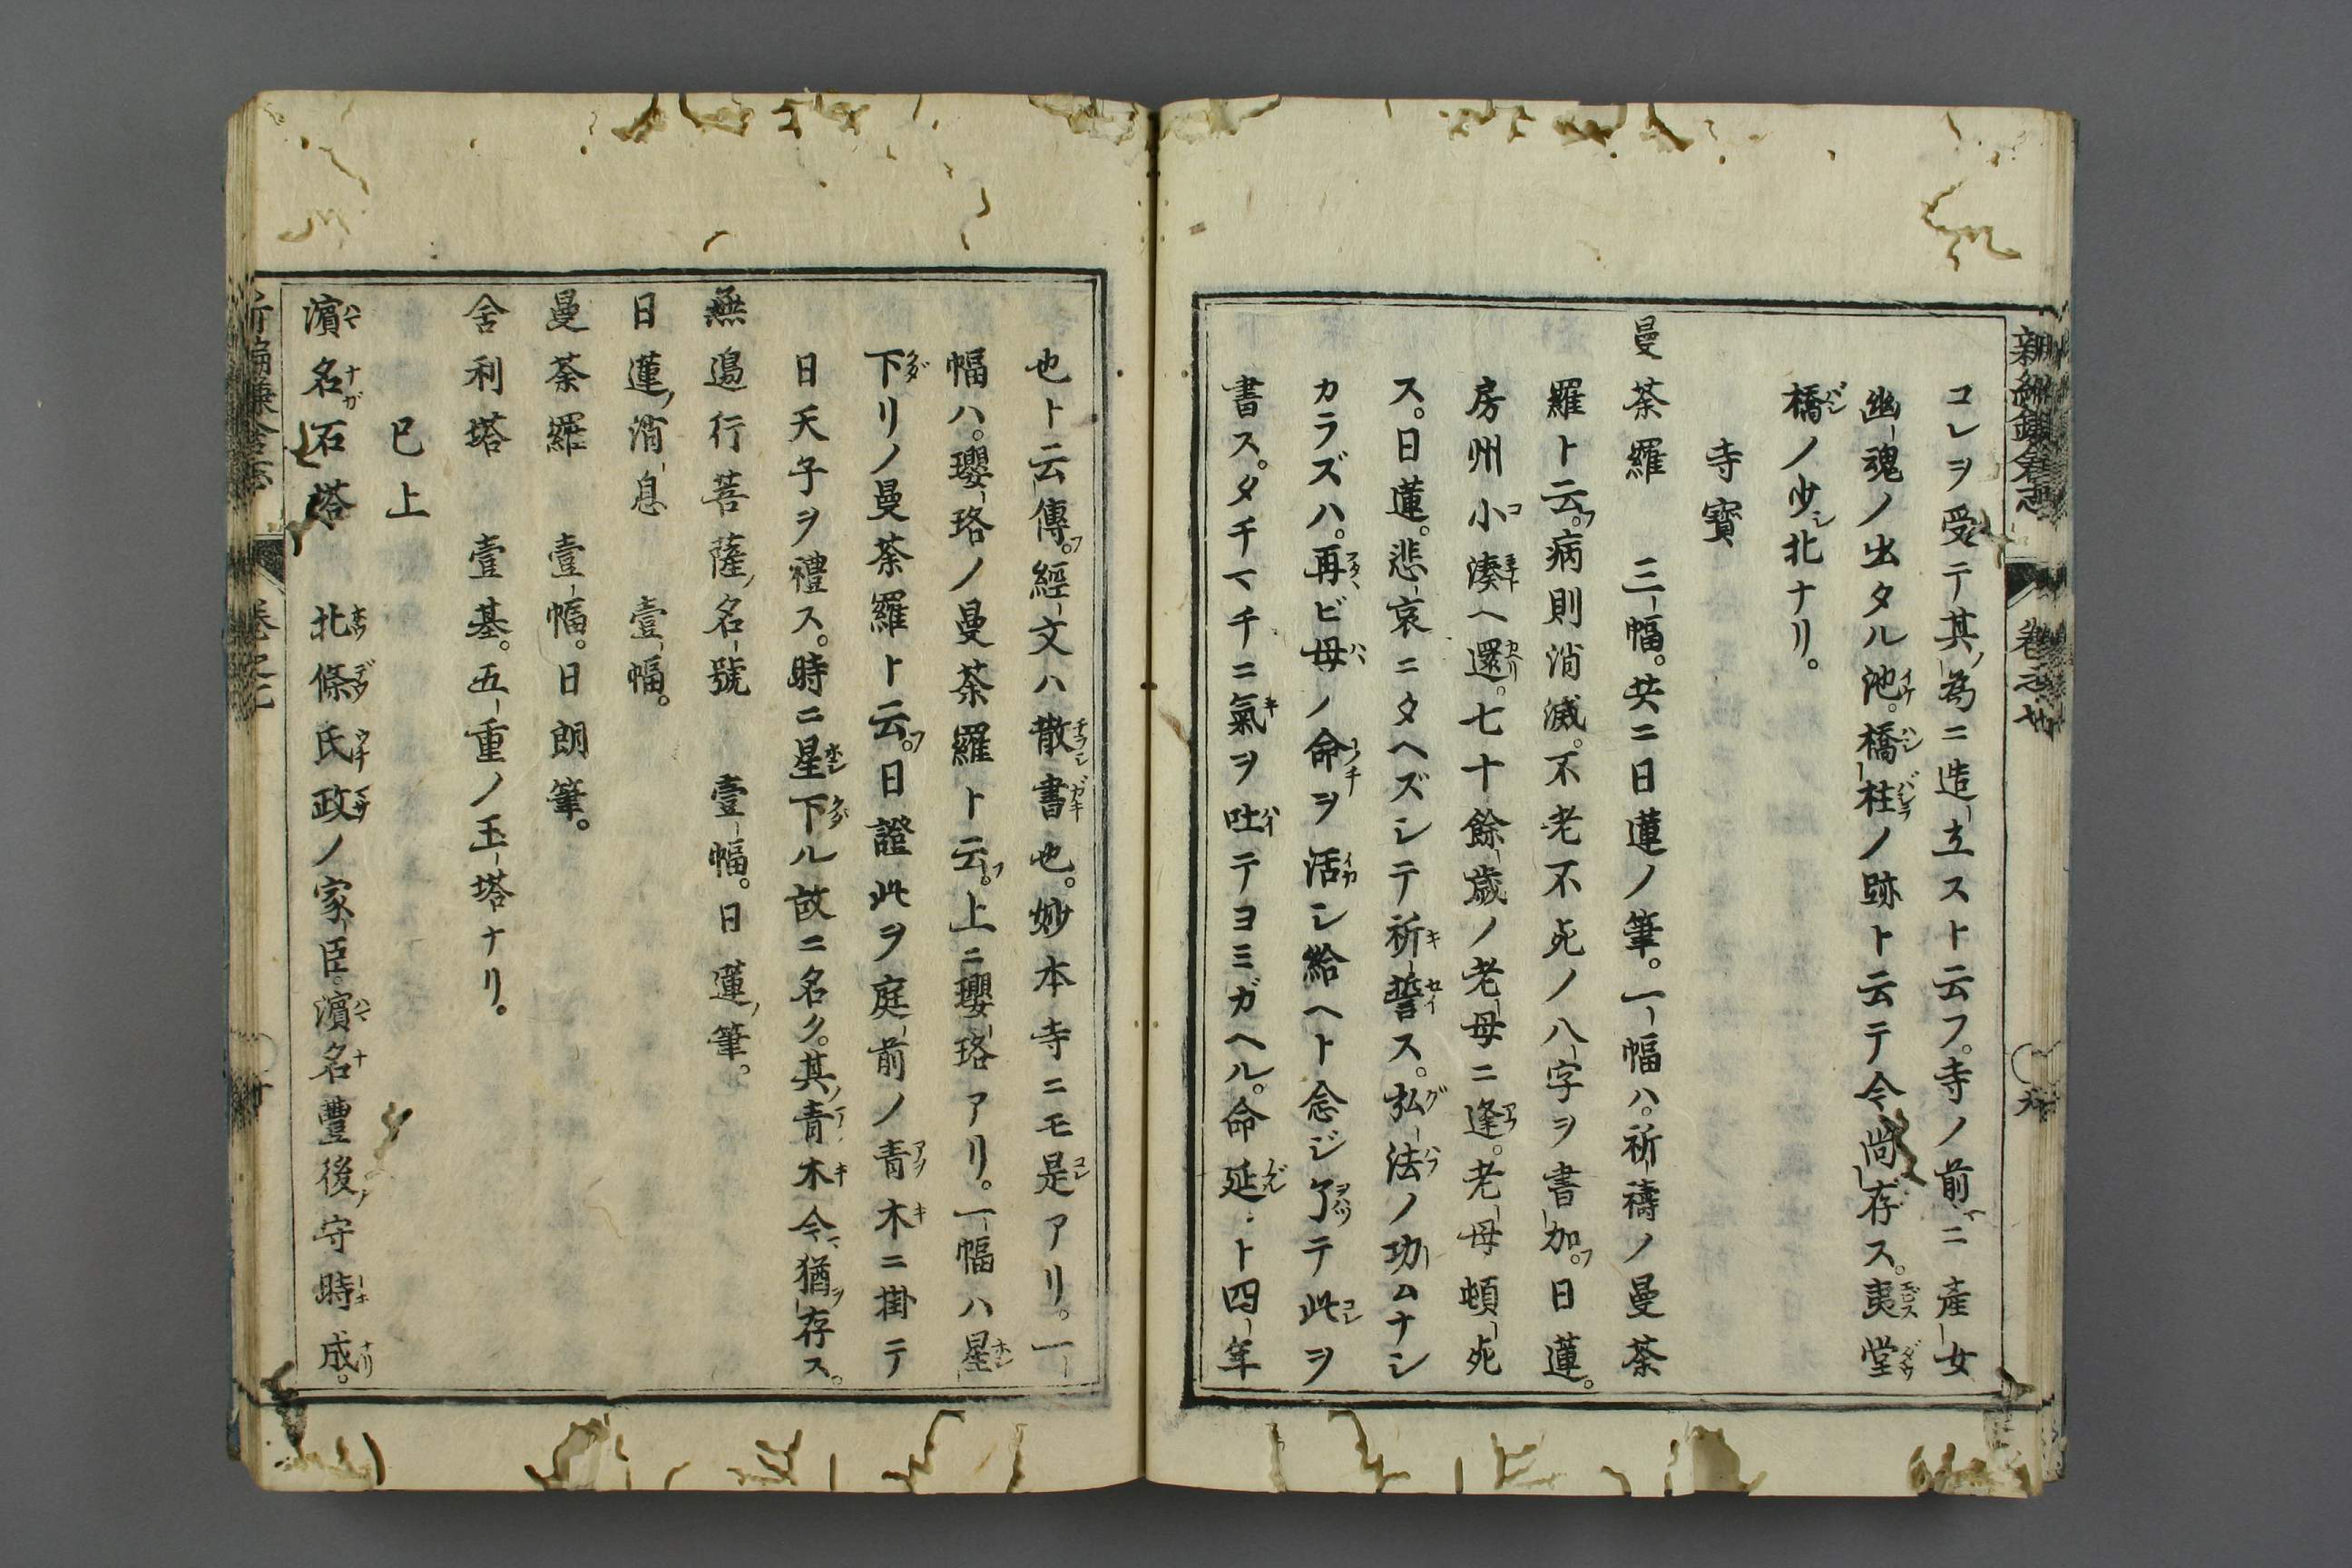 新編鎌倉志 卷之七
コレヲ受テ其ノ為ニ造立スト云フ。寺ノ前ニ産女
幽魂ノ出タル池。橋柱ノ跡ト云テ今尚存ス。夷堂
橋ノ少シ北ナリ。
寺寶
曼荼羅 三幅。共ニ日蓮ノ筆。一幅ハ。祈禱ノ曼荼
羅ト云フ。病則消滅。不老不死ノ八字ヲ書加フ。日蓮。
房州小湊ヘ還リ。七十餘歳ノ老母ニ逢フ。老母頓死
ス。日蓮。悲哀ニタヘズシテ祈誓ス。弘法ノ功ムナシ
カラズハ。再ビ母ノ命ヲ活シ給ヘト念ジ了テ此ヲ
書ス。タチマチニ氣ヲ吐テヨミガヘル。命延ト四年
也ト云傳フ。經文ハ散書也。妙本寺ニモ是アリ。一
幅ハ。瓔珞ノ曼荼羅ト云フ。上ニ瓔珞アリ。一幅ハ星
下リノ曼荼羅ト云フ。日證此ヲ庭前ノ青木ニ掛テ
日天子ヲ禮ス。時ニ星下ル故ニ名ク。其ノ青木今猶ヲ存ス。
無邊行菩薩ノ名號 壹幅。日蓮ノ筆。
日蓮ノ消息 壹幅。
曼荼羅 壹幅。日朗筆。
舍利塔 壹基。五重ノ玉塔ナリ。
已上
濱名石塔 北條氏政ノ家臣。濱名豐後ノ守時成。
新編鎌倉志 卷之七